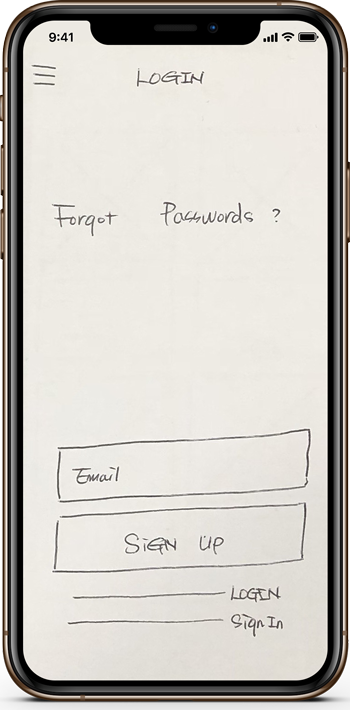 9:41
LOGIN
Forgot Passwords ?
Email
SIGN UP
LOGIN
Sign In